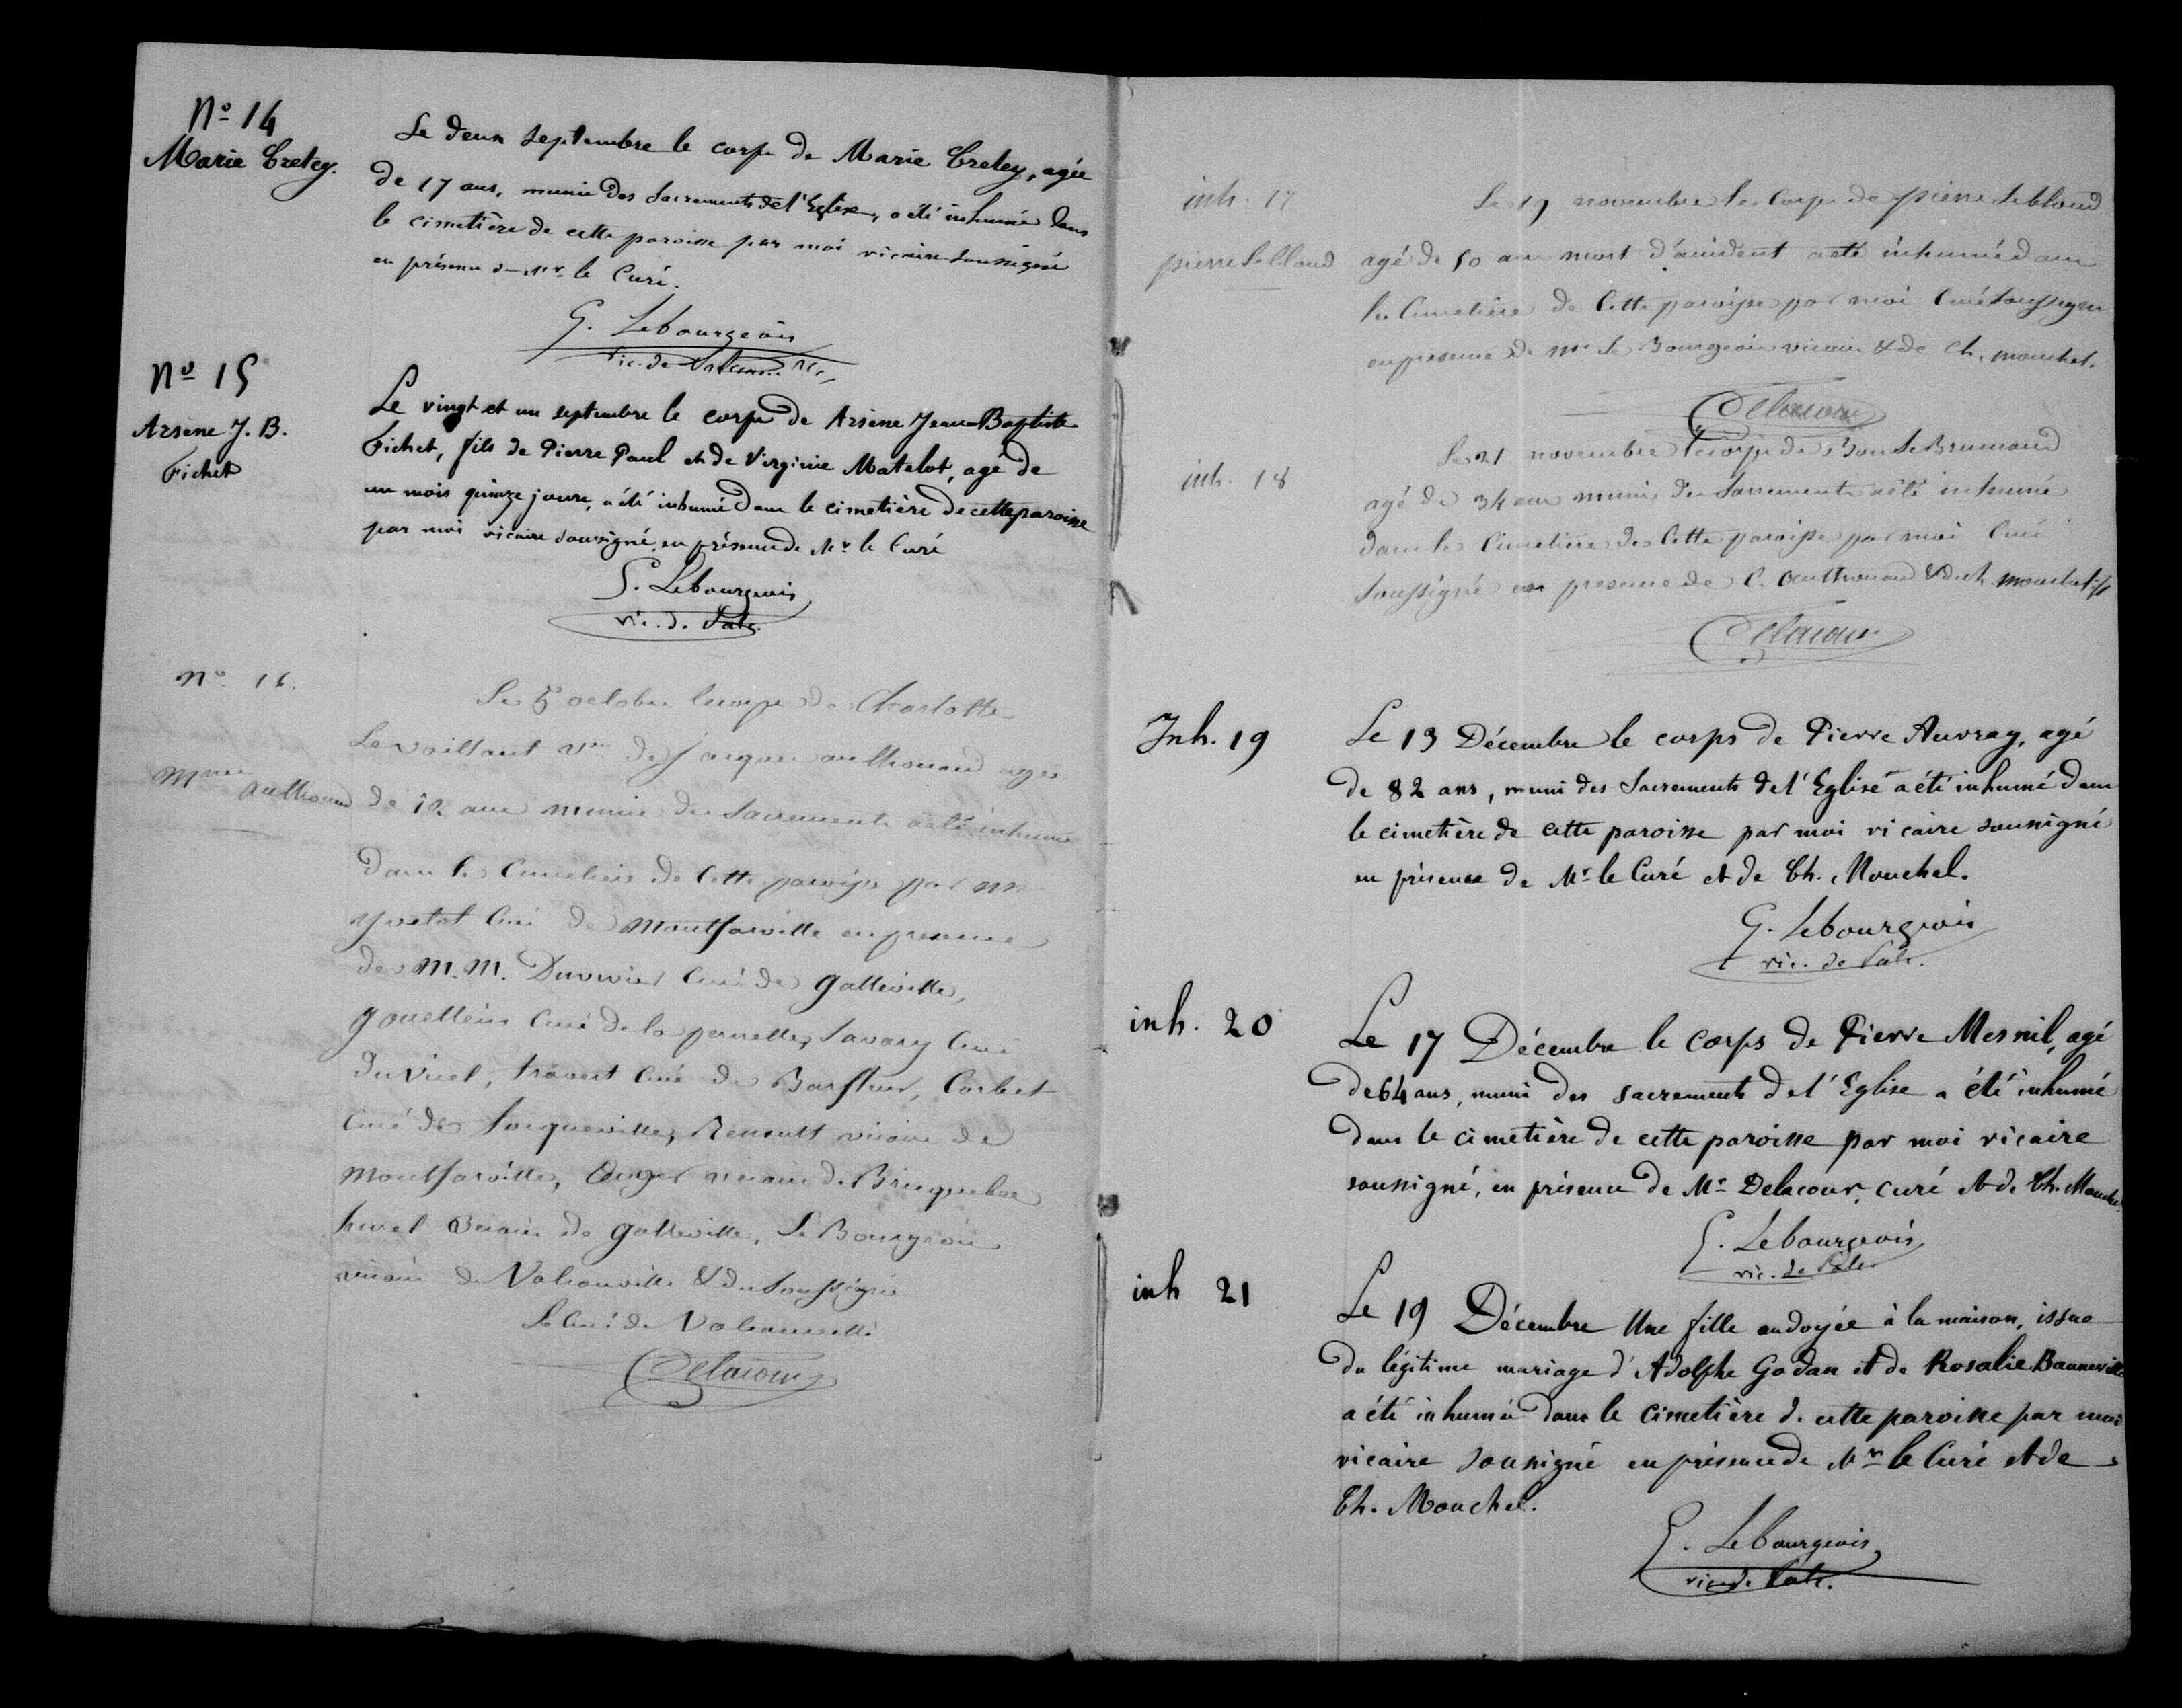 Nº 14
Marie Cretey.
Le deux septembre le corps de Marie Cretey, agée
de 17 ans, munie des Sacrements de l'Eglise, a été inhumée dans
le cimetière de cette paroisse par moi vicaire soussigné
en présence de Mr le Curé.
G. Lebourgeois
vic. de
Nº 15
Arsène J. B.
Fichet
Le vingt et un septembre le corps de Arsène Jean Baptiste
Fichet, fils de Pierre Paul et de Virginie Matelot, agé de
un mois quinze jours, a été inhumé dans le cimetière de cette paroisse
par moi vicaire soussigné, en présence de Mr le Curé
G. Lebourgeois
vic. de Valc.
nº 16.
Mme authouard
Le 5 octobre le corps de Charlotte
Levaillant Ve de jacques authouard agée
de ans munie des Sacrements a été inhumé
dans le Cimetière de cette paroisse par mr
yvetot Curé de Montfarville en presence
de M.M. Duvivier Curé de gatteville,
gouellein Curé de la pernelle, Savary Curé
du vicel, travert Curé de Barfleur, Corbet
Curé de tocqueville, Renault vicaire de
Montfarville, Auger vicaire de Bricquebec
hurel vicaire de gatteville, Le Bourgeois
vicaire de Valcanville & du Soussigné
Le Curé de Valcanville
Delacour
inh. 17
pierre Leblond
Le 19 novembre le corps de pierre Leblond
agé de 50 ans mort d'accident a été inhumé dans
le Cimetière de Cette paroisse par moi Curé Soussigné
en presence de mr Le Bourgeois vicaire & de Ch. mouchel.
Delacour
inh. 18
Le 21 novembre le corps de Bon LeBrumand
agé de 34 ans muni des Sacrements a été inhumé
dans le Cimetière de Cette paroisse par moi Curé
Soussigné en presence de C. authouard & de th. mouchel
Delacour
Inh. 19
Le 13 Décembre le corps de Pierre Auvray, agé
de 82 ans, muni des Sacrements de l'Eglise a été inhumé dans
le cimetière de cette paroisse par moi vicaire soussigné
en présence de Mr le Curé et de Th. Mouchel.
G. Lebourgeois
vic. de Valc.
inh. 20
Le 17 Décembre le corps de Pierre Mesnil, agé
de 64 ans, muni des sacrements de l'Eglise a été inhumé
dans le cimetière de cette paroisse par moi vicaire
soussigné, en présence de Mr Delacour, curé et de Th. Mouchel
G. Lebourgeois
vic. de Valc.
inh 21
Le 19 Décembre Une fille ondoyée à la maison, issue
du légitime mariage d'Adolphe Godan et de Rosalie Banneville
a été inhumée dans le cimetière de cette paroisse par moi
vicaire soussigné en présence de Mr le Curé et de
Th. Mouchel.
G. Lebourgeois
vic. de Valc.